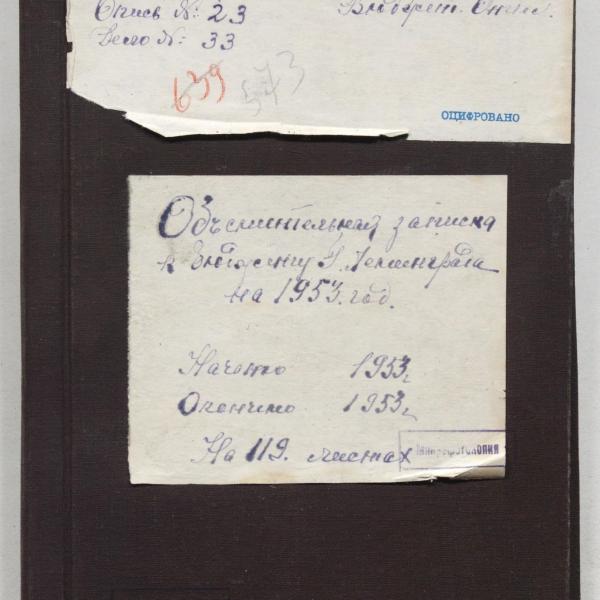 Опись №: 23
Бюджет.
Дело №: 33
639 573
ОЦИФРОВАНО
Объяснительная записка
к бюджету г. Ленинграда
на 1953 год.
Начато 1953 г.
Окончено 1953 г.
На 119. листах
Микрофотокопия